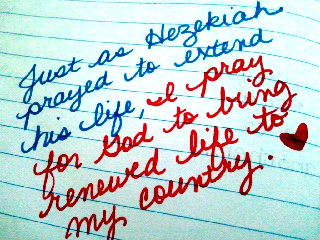 Just as Hezekiah
prayed to extend
his life, I pray
for God to bring
renewed life to
my country.